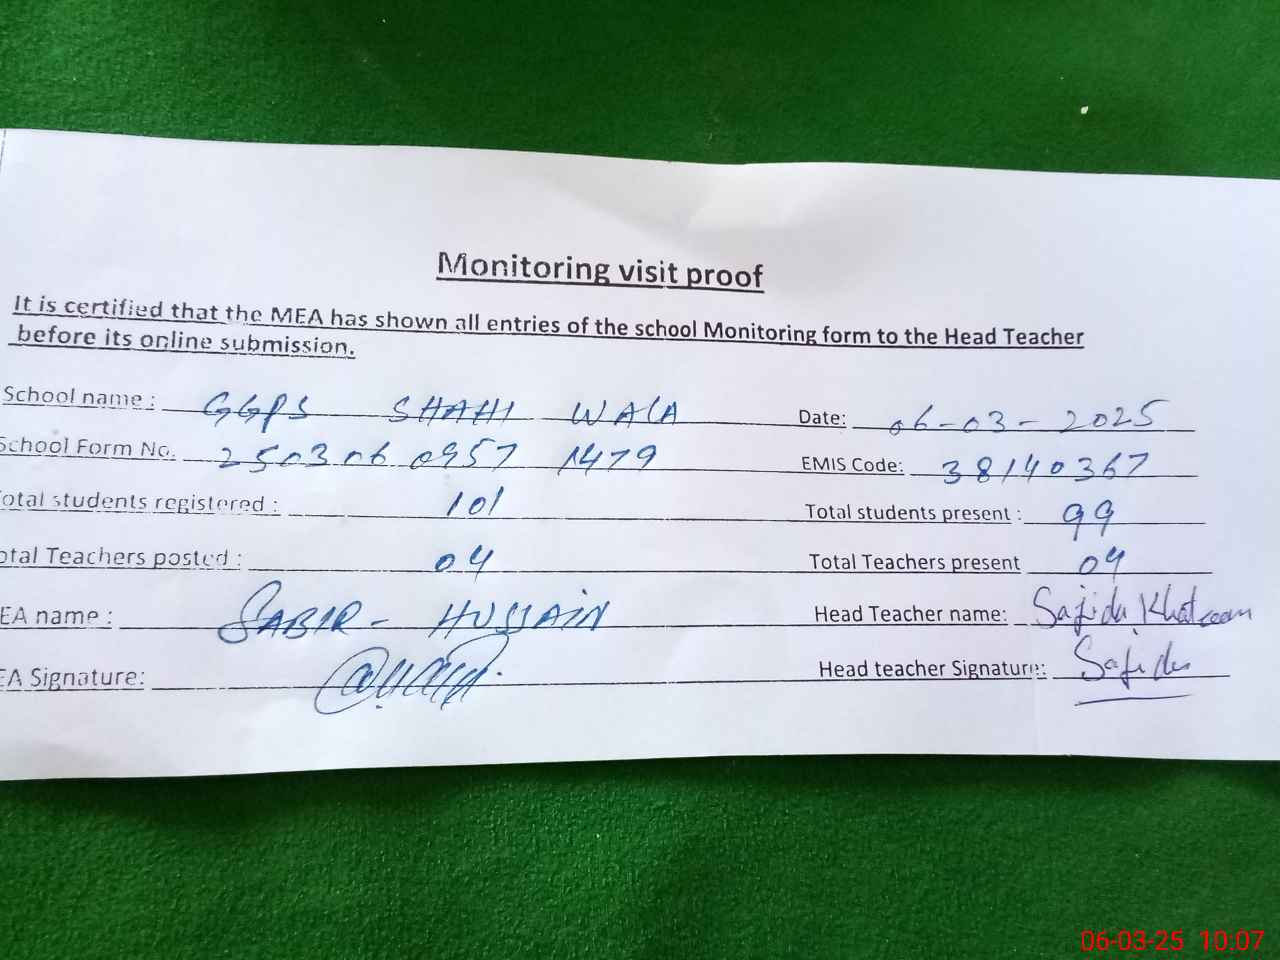 Monitoring visit proof
It is certified that the MEA has shown all entries of the school Monitoring form to the Head Teacher
before its online submission.
School name : GGPS SHAHI WALA Date: 06-03-2025
School Form No. 2503060957 1479 EMIS Code: 38140367
otal students registered : 101 Total students present : 99
otal Teachers posted : 04 Total Teachers present 04
EA name : SABIR - HUSSAIN Head Teacher name: Sajida Khatoon
EA Signature: Head teacher Signature: Sajida
06-03-25 10:07